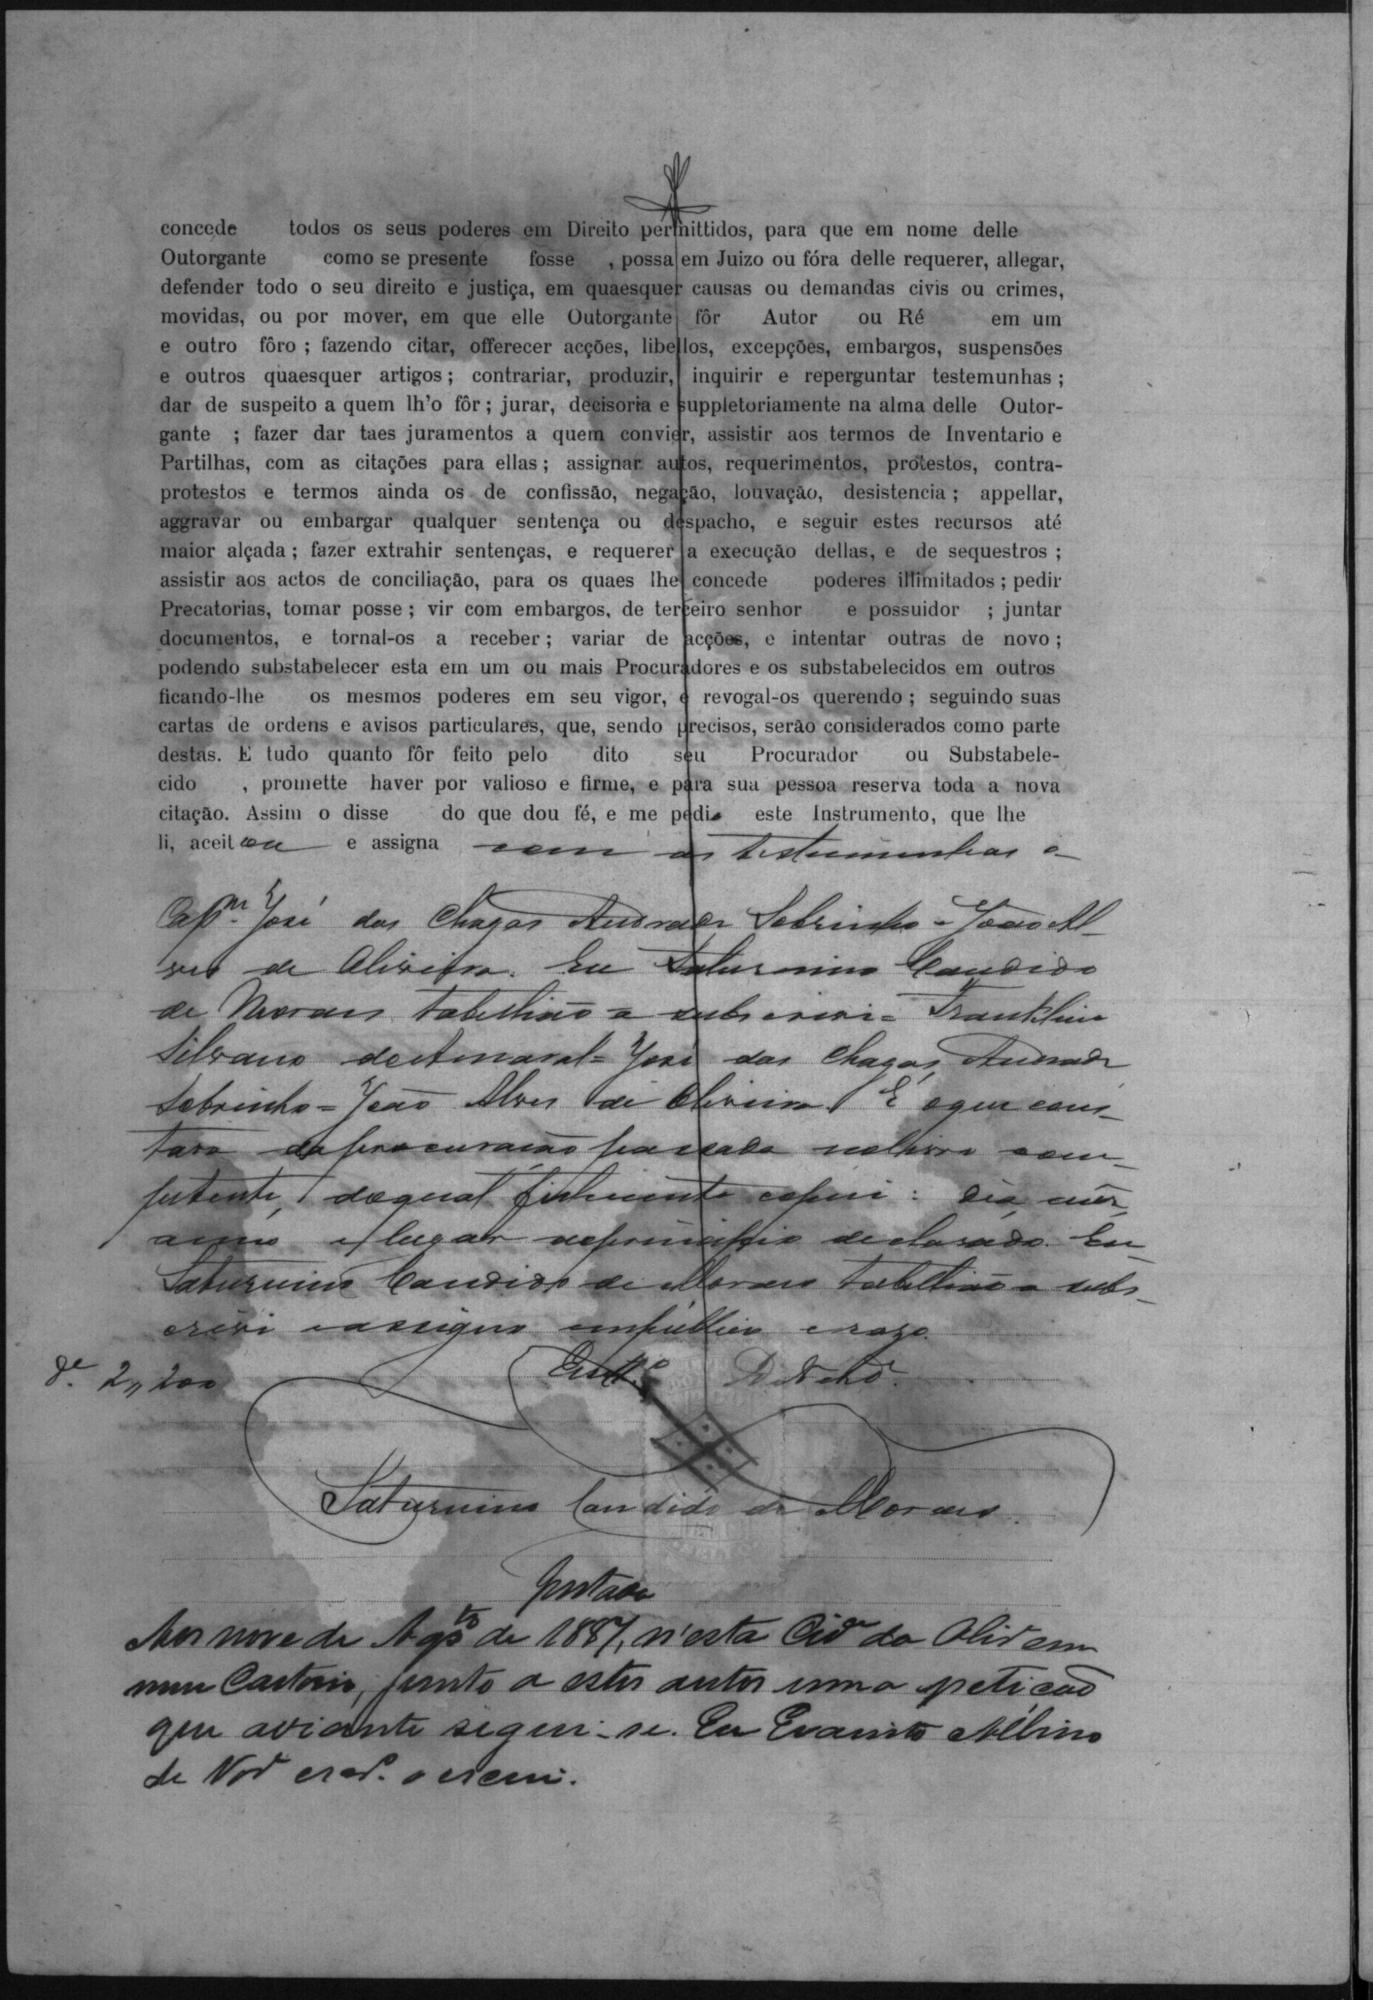 concede todos os seus poderes em Direito permittidos, para que em nome delle
Outorgante como se presente fosse , possa em Juizo ou fóra delle requerer, allegar,
defender todo o seu direito e justiça, em quaesquer causas ou demandas civis ou crimes,
movidas, ou por mover, em que elle Outorgante fôr Autor ou Ré em um
e outro fôro ; fazendo citar, offerecer acções, libellos, excepções, embargos, suspensões
e outros quaesquer artigos ; contrariar, produzir, inquirir e reperguntar testemunhas ;
dar de suspeito a quem lh'o fôr ; jurar, decisoria e suppletoriamente na alma delle Outor-
gante ; fazer dar taes juramentos a quem convier, assistir aos termos de Inventario e
Partilhas, com as citações para ellas ; assignar autos, requerimentos, protestos, contra-
protestos e termos ainda os de confissão, negação, louvação, desistencia ; appellar,
aggravar ou embargar qualquer sentença ou despacho, e seguir estes recursos até
maior alçada ; fazer extrahir sentenças, e requerer a execução dellas, e de sequestros ;
assistir aos actos de conciliação, para os quaes lhe concede poderes illimitados ; pedir
Precatorias, tomar posse ; vir com embargos, de terceiro senhor e possuidor ; juntar
documentos, e tornal-os a receber ; variar de acções, e intentar outras de novo ;
podendo substabelecer esta em um ou mais Procuradores e os substabelecidos em outros
ficando-lhe os mesmos poderes em seu vigor, e revogal-os querendo ; seguindo suas
cartas de ordens e avisos particulares, que, sendo precisos, serão considerados como parte
destas. E tudo quanto fôr feito pelo dito seu Procurador ou Substabele-
cido , promette haver por valioso e firme, e para sua pessoa reserva toda a nova
citação. Assim o disse do que dou fé, e me pedio este Instrumento, que lhe
li, aceitou e assigna com as testemunhas o
Capm. José das Chagas Andrade Sobrinho e João Al-
ves de Oliveira. Eu Saturnino Candido
de Moraes tabellião a subscrevi = Franklin
Silvano do Amaral = José das Chagas Andrade
Sobrinho = João Alves de Oliveira. E o que cons-
tava da procuração passada no livro com-
petente, do qual fielmente copiei : dia, mez,
anno e lugar no principio declarado. Eu
Saturnino Candido de Moraes tabellião a subs-
crevi e assigno em publico e raso.
2,,200
Saturnino Candido de Moraes
Juntada
Aos nove de Agsto de 1887, n'esta Cide da Olivera em
meu Cartorio, junto a estes autos uma petição
que adiante segue-se. Eu Evaristo Albino
de o escrevi.